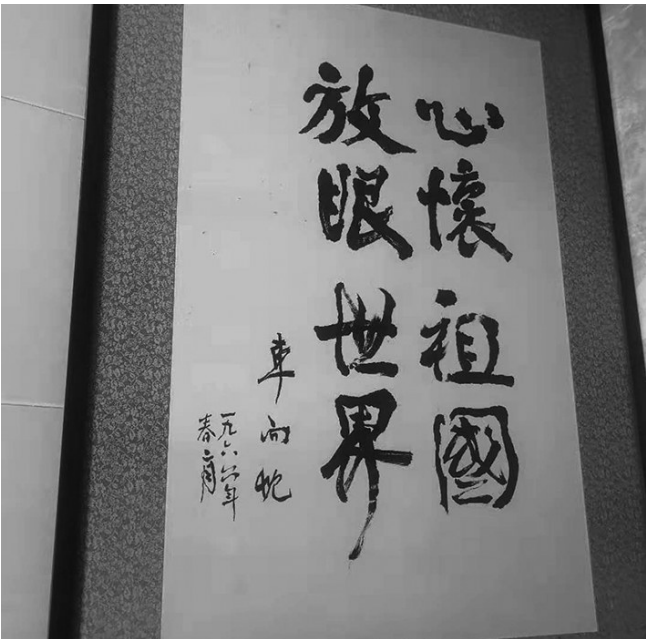 心懷祖國
放眼世界
車向忱
一九六六年
春二月